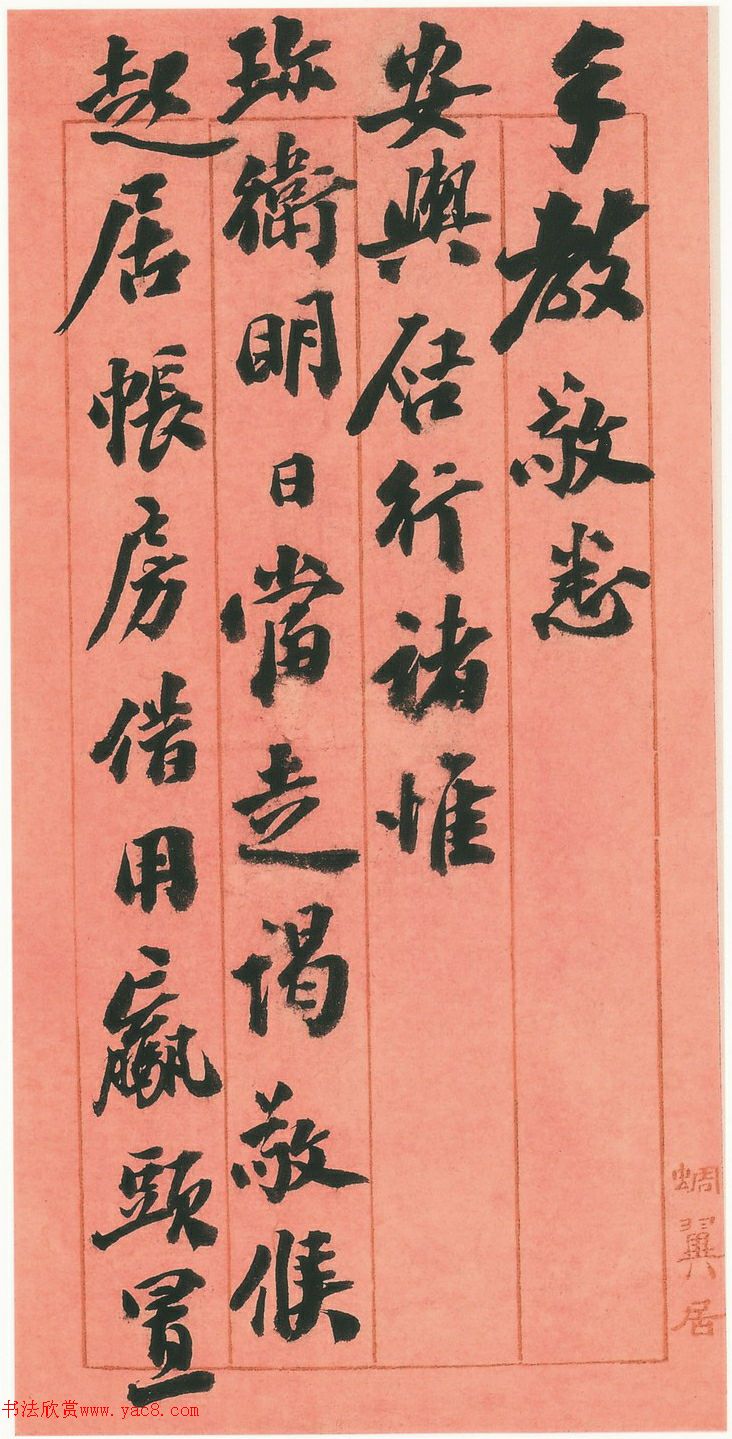 蜩翼居
手教敬悉
安輿启行諸惟
珎衛明日當走謁敬候
起居帳房借用贏頭置
书法欣赏www.yac8.com